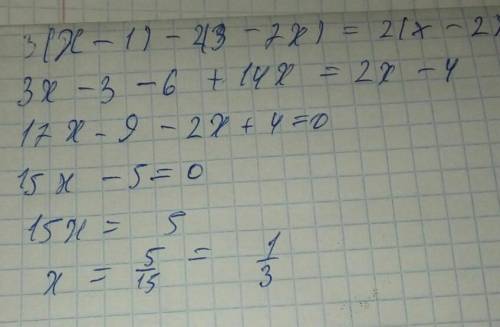 3(x - 1) - 2(3 - 7x) = 2(x - 2)
3x - 3 - 6 + 14x = 2x - 4
17x - 9 - 2x + 4 = 0
15x - 5 = 0
15x = 5
x = 5/15 = 1/3